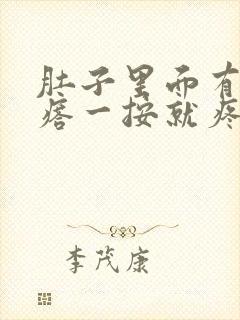 肚子里面有
瘩一按就疼
李茂康